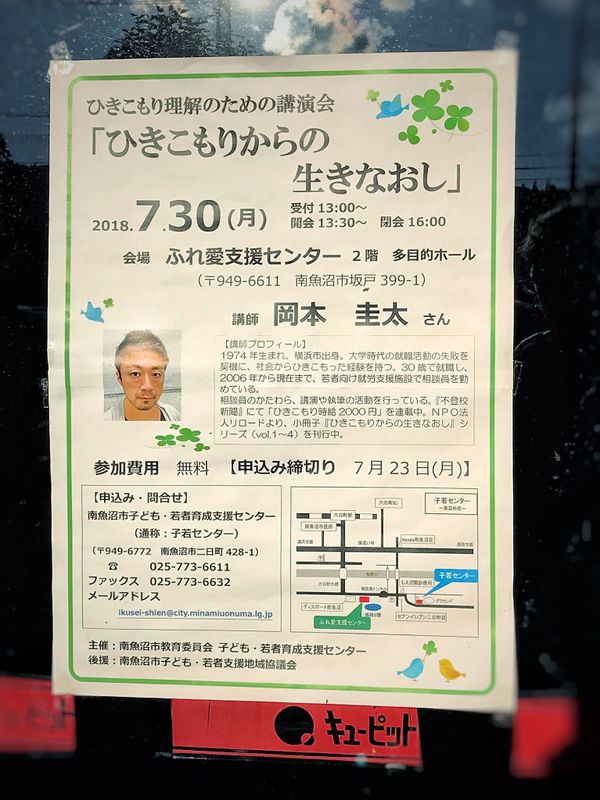 ひきこもり理解のための講演会
「ひきこもりからの
生きなおし」
2018.7.30(月)
受付 13:00~
開会 13:30~ 閉会 16:00
会場 ふれ愛支援センター 2階 多目的ホール
(〒949-6611 南魚沼市坂戸399-1)
講師 岡本 圭太 さん
【講師プロフィール】
1974年生まれ。横浜市出身。大学時代の就職活動の失敗を
契機に、社会からひきこもった経験を持つ。30歳で就職し、
2006年から現在まで、若者向け就労支援施設で相談員を勤
めている。
相談員のかたわら、講演や執筆の活動を行っている。『不登校
新聞』にて「ひきこもり時給2000円」を連載中。NPO法
人リロードより、小冊子『ひきこもりからの生きなおし』シ
リーズ(vol.1~4)を刊行中。
参加費用 無料 【申込み締切り 7月23日(月)】
【申込み・問合せ】
南魚沼市子ども・若者育成支援センター
(通称:子若センター)
(〒949-6772 南魚沼市二日町428-1)
☎ 025-773-6611
ファックス 025-773-6632
メールアドレス
ikusei-shien@city.minamiuonuma.lg.jp
子若センター
六日町IC
六日町駅
南魚沼市役所
国道17号
Honda南魚沼店
子若センター
グラウンド
ディスポート南魚沼
ふれ愛支援センター
セブンイレブン二日町店
主催:南魚沼市教育委員会 子ども・若者育成支援センター
後援:南魚沼市子ども・若者支援地域協議会
キューピット